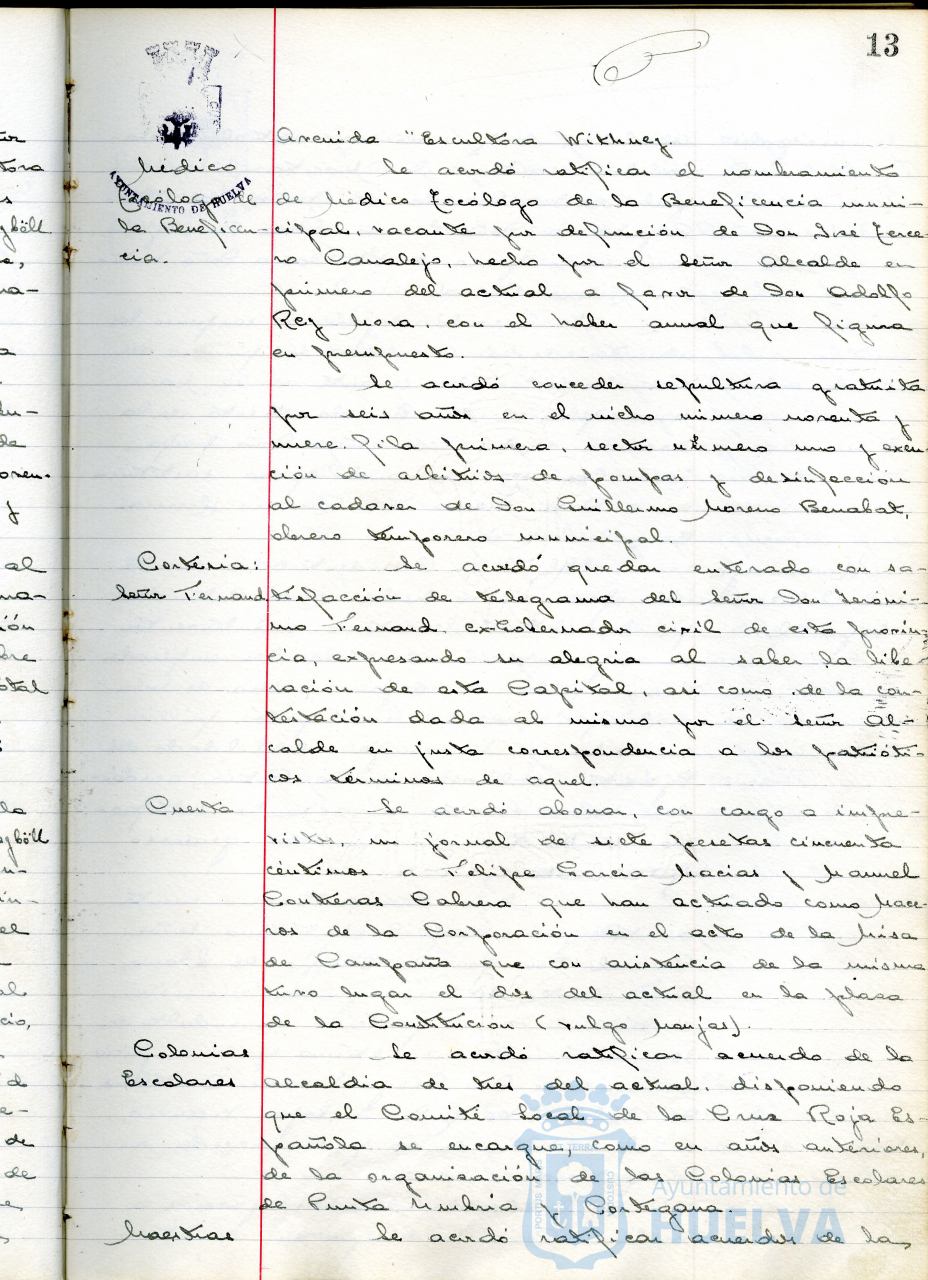 13
Avenida "Escultora Withney.
Médico
Se acordó ratificar el nombramiento
Tocólogo de
de Médico Tocólogo de la Beneficencia muni-
la Beneficen-
cipal, vacante por defunción de Don José Terce-
cia.
ro Canalejo, hecho por el Señor Alcalde en
primero del actual a favor de Don Adolfo
Rey Mora, con el haber anual que figura
en presupuesto.
Se acordó conceder sepultura gratuita
por seis años en el nicho número noventa y
nueve, fila primera, sector número uno y exen-
ción de arbitrios de pompas y desinfección
al cadaver de Don Guillermo Moreno Benabat,
obrero temporero municipal.
Cortesia:
Se acordó quedar enterado con sa-
Señor Fernand
tisfacción de telegrama del Señor Don Jeróni-
mo Fernand, exGobernador civil de esta provin-
cia, expresando su alegria al saber la libe-
ración de esta Capital, asi como de la con-
testación dada al mismo por el Señor Al-
calde en justa correspondencia a los patrióti-
cos términos de aquel.
Cuenta
Se acordó abonar, con cargo a impre-
vistos, un jornal de siete pesetas cincuenta
céntimos a Felipe García Macias y Manuel
Contreras Cabrera que han actuado como Mace-
ros de la Corporación en el acto de la Misa
de Campaña que con asistencia de la misma
tuvo lugar el dos del actual en la plaza
de la Constitución (vulgo Monjas).
Colonias
Se acordó ratificar acuerdo de la
Escolares
Alcaldia de tres del actual, disponiendo
que el Comité Local de la Cruz Roja Es-
pañola se encargue, como en años anteriores,
de la organización de las Colonias Escolares
de Punta Umbria y Cortegana.
Maestras
Se acordó ratificar acuerdos de la
AYUNTAMIENTO DE HUELVA
Ayuntamiento de
HUELVA